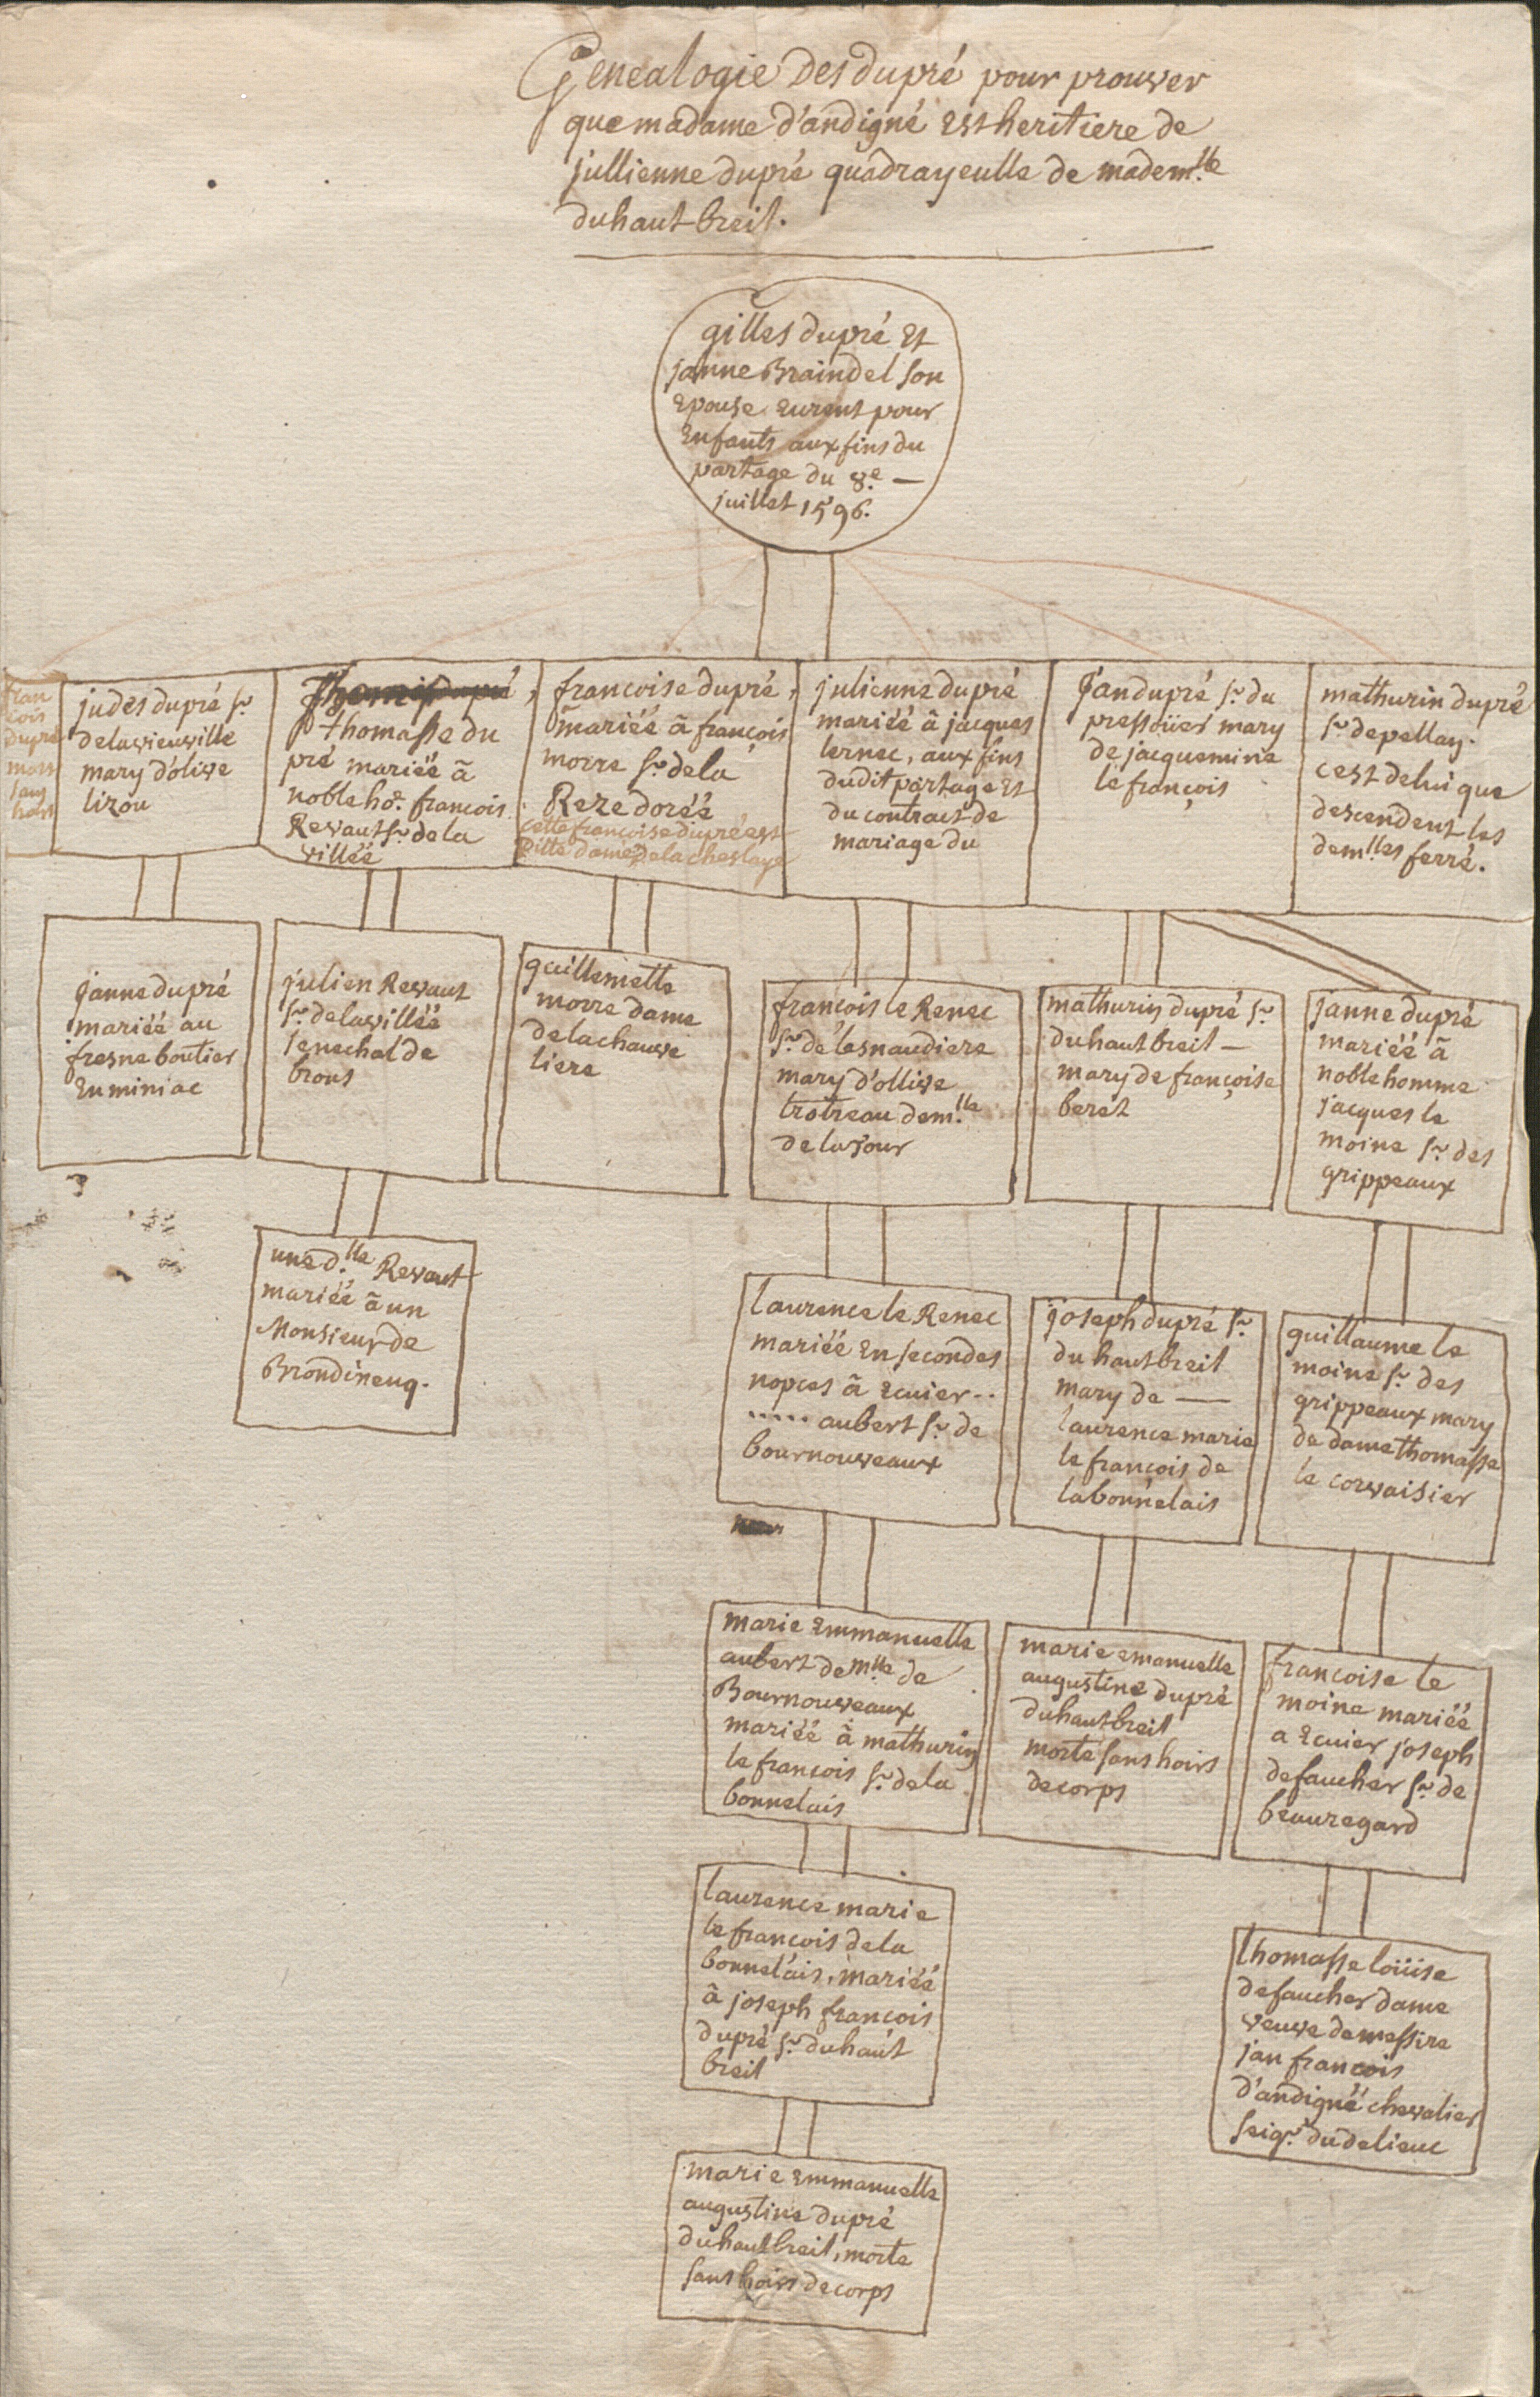 Genealogie des dupré pour prouver
que madame d'andigné est heritiere de
jullienne dupré quadrayeulle de madem.lle
du haut breil.
gilles dupré et
janne Braindel son
epouse eurent pour
enfants aux fins du
partage du 8.e —
juillet 1596.
fran
cois
dupré
mort
sans
hoirs
judes dupré sr
de la vieuville
mary d'olive
lizou
thomasse du
pré mariéé à
noble ho. francois
Revaut sr de la
villéé
francoise dupré,
mariéé à françois
morre sr de la
Reze doréé
cette francoise dupré est
ditte dame de la cheslaye
julienne dupré
mariéé à jacques
lernec, aux fins
dudit partage et
du contract de
mariage du
jan dupré sr du
pressoüer mary
de jacquemine
le françois
mathurin dupré
sr de pellay.
c'est de lui que
descendent les
demlles ferré.
janne dupré
mariéé au
fresne boutier
en miniac
julien Revaut
sr de la villéé
senechal de
brons
guillemette
morre dame
de la chauve
liere
francois le Renec
sr de lesnaudiere
mary d'ollive
trotreau dem.lle
de la tour
mathurin dupré sr
du haut breil —
mary de françoise
beret
janne dupré
mariéé à
noble homme
jacques le
moine sr des
grippeaux
une d.lle Revaut
mariéé à un
Monsieur de
Brondineuq.
laurence le Renec
mariéé en secondes
nopces à ecuier ..
..... aubert sr de
bournouveaux
joseph dupré sr
du haut breil
mary de —
laurence marie
le françois de
la bonnelais
guillaume le
moine sr des
grippeaux mary
de dame thomasse
le corvaisier
marie emmanuelle
aubert demlle de
Bournouveaux
mariéé à mathurin
le francois sr de la
bonnelais
marie emanuelle
augustine dupré
du haut breil
morte sans hoirs
de corps
francoise le
moine mariéé
a ecuier joseph
de faucher sr de
beauregard
laurence marie
le francois de la
bonnelais, mariéé
à joseph francois
dupré sr du haut
breil
thomasse loüise
de faucher dame
veuve de messire
jan francois
d'andignéé chevalier
seigr du delieuc
marie emmanuelle
augustine dupré
du haut breil, morte
sans hoirs de corps